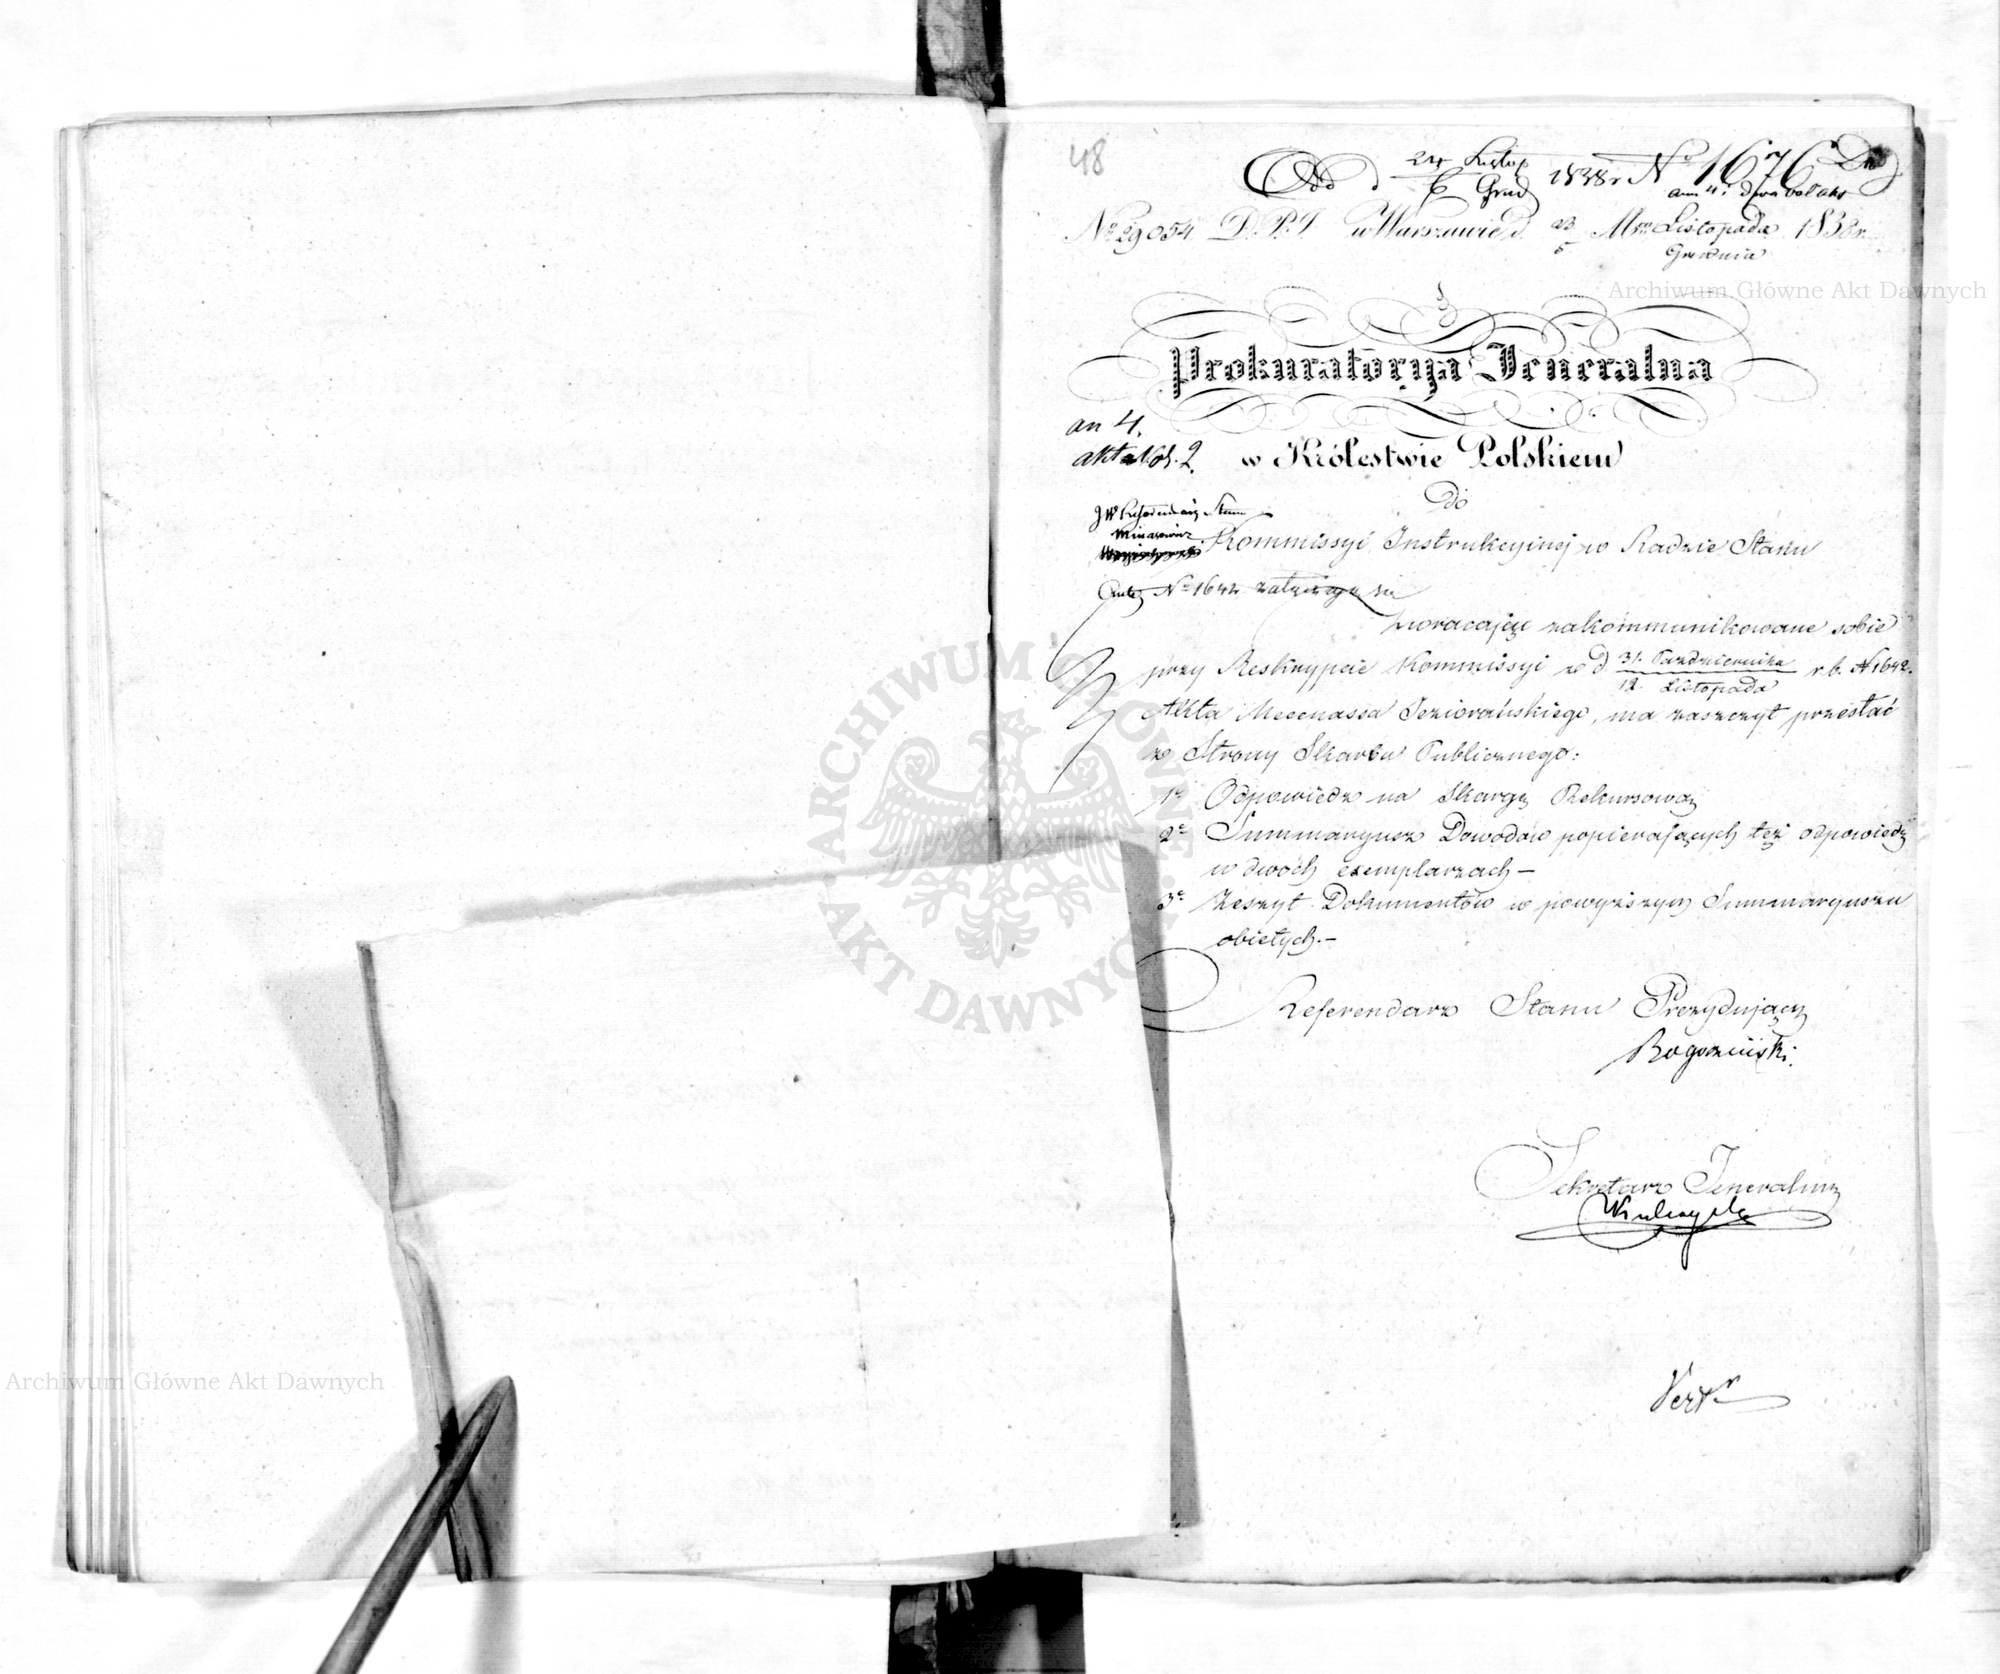 48
Odd d 24 Listop / 6 Grud 1838 r No 1676 Dno
an 4. dwa vol akt
No 29054 D.P.J. w Warszawie d. 23 / 5 Mca Listopada / Grudnia 1838 r.
Archiwum Główne Akt Dawnych
Prokuratorya Jeneralna
an 4.
akta Vol. 2.
w Królestwie Polskiem
do
JW Referendarz Stanu
Minasowicz
Kommissyi Instrukcyinej w Radzie Stanu
No 1642
Zwracając zakommunikowane sobie
przy Reskrypcie Kommissyi z d 31. Października / 12. Listopada r. b. N 1642.
Akta Mecenassa Jeziorańskiego, ma zaszczyt przesłać
ze Strony Skarbu Publicznego:
1e Odpowiedź na Skargę Rekursową
2e Summaryusz Dowodów popierających też odpowiedź
w dwóch exemplarzach —
3e Zeszyt Dokumentów w powyższym Summaryuszu
objętych. —
Referendarz Stanu Prezydujący
Sekretarz Jeneralny
ARCHIWUM GŁÓWNE AKT DAWNYCH
Archiwum Główne Akt Dawnych